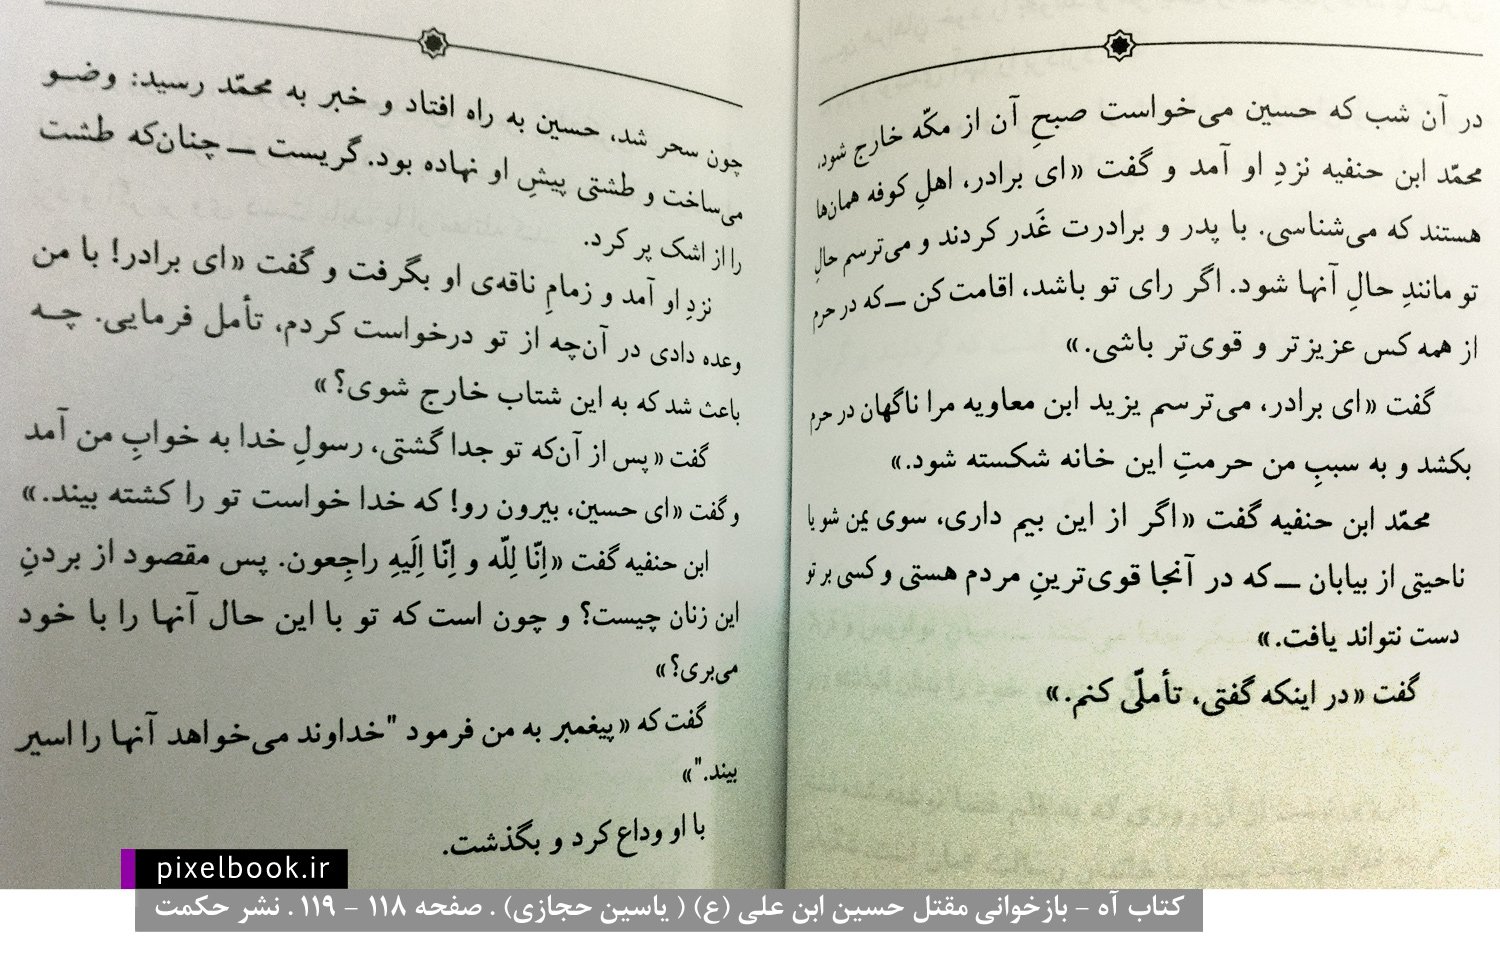 در آن شب که حسین می‌خواست صبحِ آن از مکّه خارج شود،
محمّد ابن حنفیه نزدِ او آمد و گفت «ای برادر، اهلِ کوفه همان‌ها
هستند که می‌شناسی. با پدر و برادرت غَدر کردند و می‌ترسم حالِ
تو مانندِ حالِ آنها شود. اگر رای تو باشد، اقامت کن ــ که در حرم
از همه کس عزیزتر و قوی‌تر باشی.»
گفت «ای برادر، می‌ترسم یزید ابن معاویه مرا ناگهان در حرم
بکشد و به سببِ من حرمتِ این خانه شکسته شود.»
محمّد ابن حنفیه گفت «اگر از این بیم داری، سوی یمن شو یا
ناحیتی از بیابان ــ که در آنجا قوی‌ترینِ مردم هستی و کسی بر تو
دست نتواند یافت.»
گفت «در اینکه گفتی، تأملّی کنم.»
چون سحر شد، حسین به راه افتاد و خبر به محمّد رسید: وضـو
می‌ساخت و طشتی پیشِ او نهاده بود. گریست ــ چنان‌که طشت
را از اشک پر کرد.
نزدِ او آمد و زمامِ ناقه‌ی او بگرفت و گفت «ای برادر! با من
وعده دادی در آن‌چه از تو درخواست کردم، تأمل فرمایی. چـه
باعث شد که به این شتاب خارج شوی؟»
گفت «پس از آن‌که تو جدا گشتی، رسولِ خدا به خوابِ من آمد
و گفت «ای حسین، بیرون رو! که خدا خواست تو را کشته بیند.»
ابن حنفیه گفت «اِنّا لِلّه و اِنّا اِلَیهِ راجِعون. پس مقصود از بردنِ
این زنان چیست؟ و چون است که تو با این حال آنها را با خود
می‌بری؟»
گفت که «پیغمبر به من فرمود "خداوند می‌خواهد آنها را اسیر
بیند."»
با او وداع کرد و بگذشت.
pixelbook.ir
کتاب آه - بازخوانی مقتل حسین ابن علی (ع) ( یاسین حجازی) . صفحه ۱۱۸ - ۱۱۹ . نشر حکمت